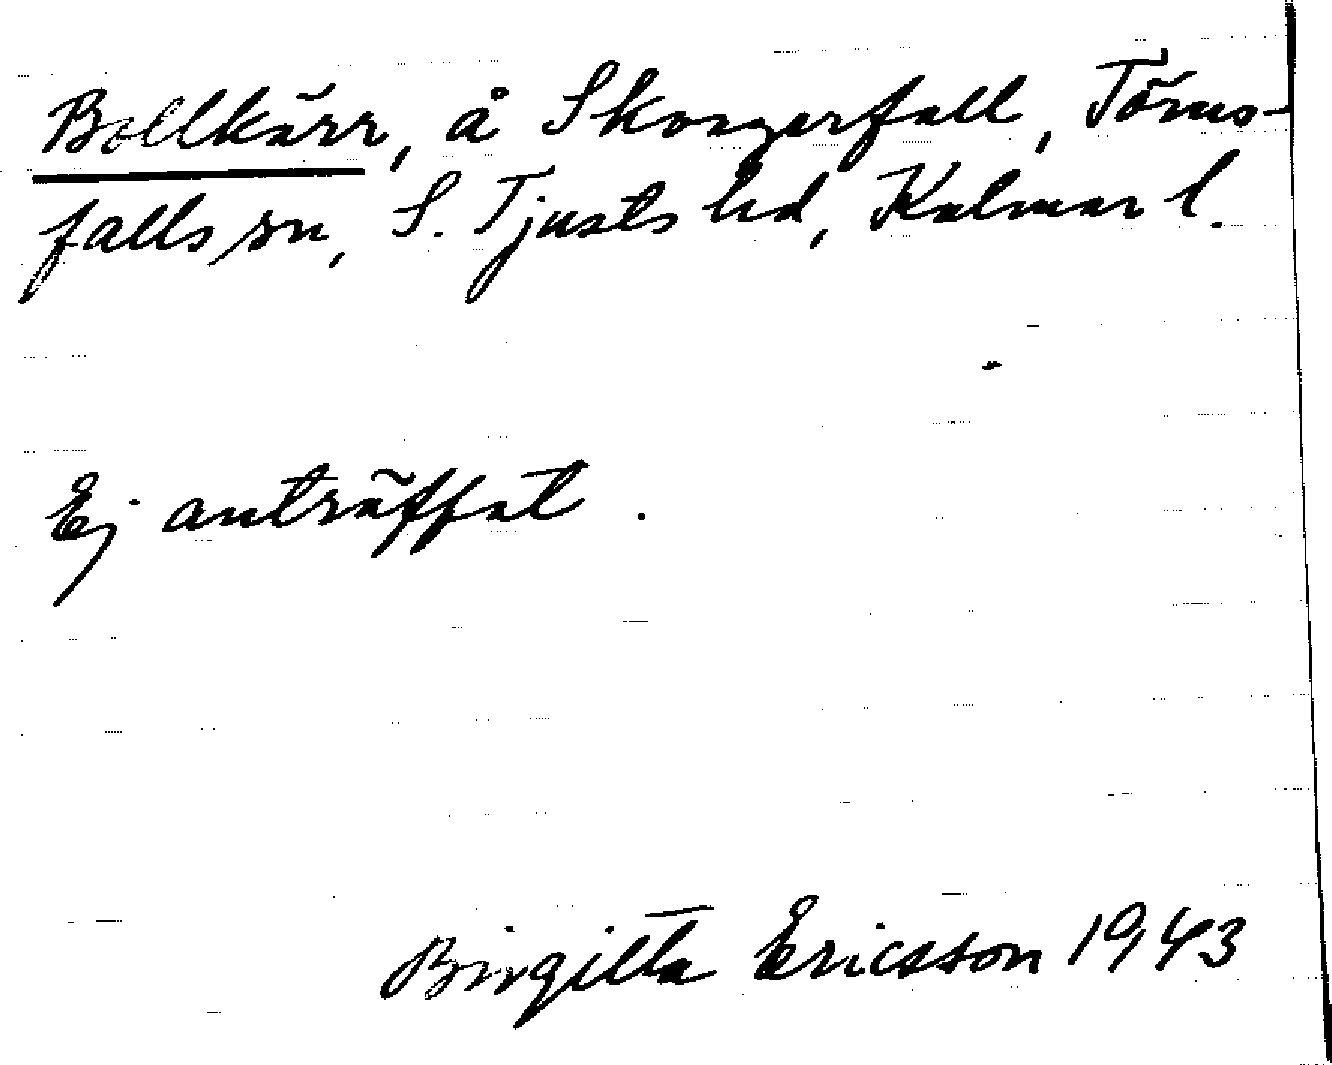 Bollkärr, å Skongerfall, Törns-
falls sn, S. Tjusts hd, Kalmar l.
Ej anträffat.
Birgitta Ericsson 1943